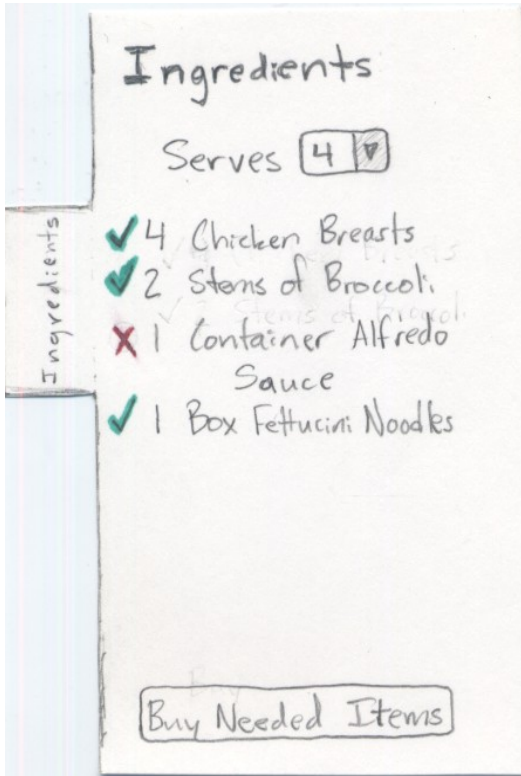 Ingredients
Serves 4
Ingredients
4 Chicken Breasts
2 Stems of Broccoli
1 Container Alfredo
Sauce
1 Box Fettucini Noodles
Buy Needed Items